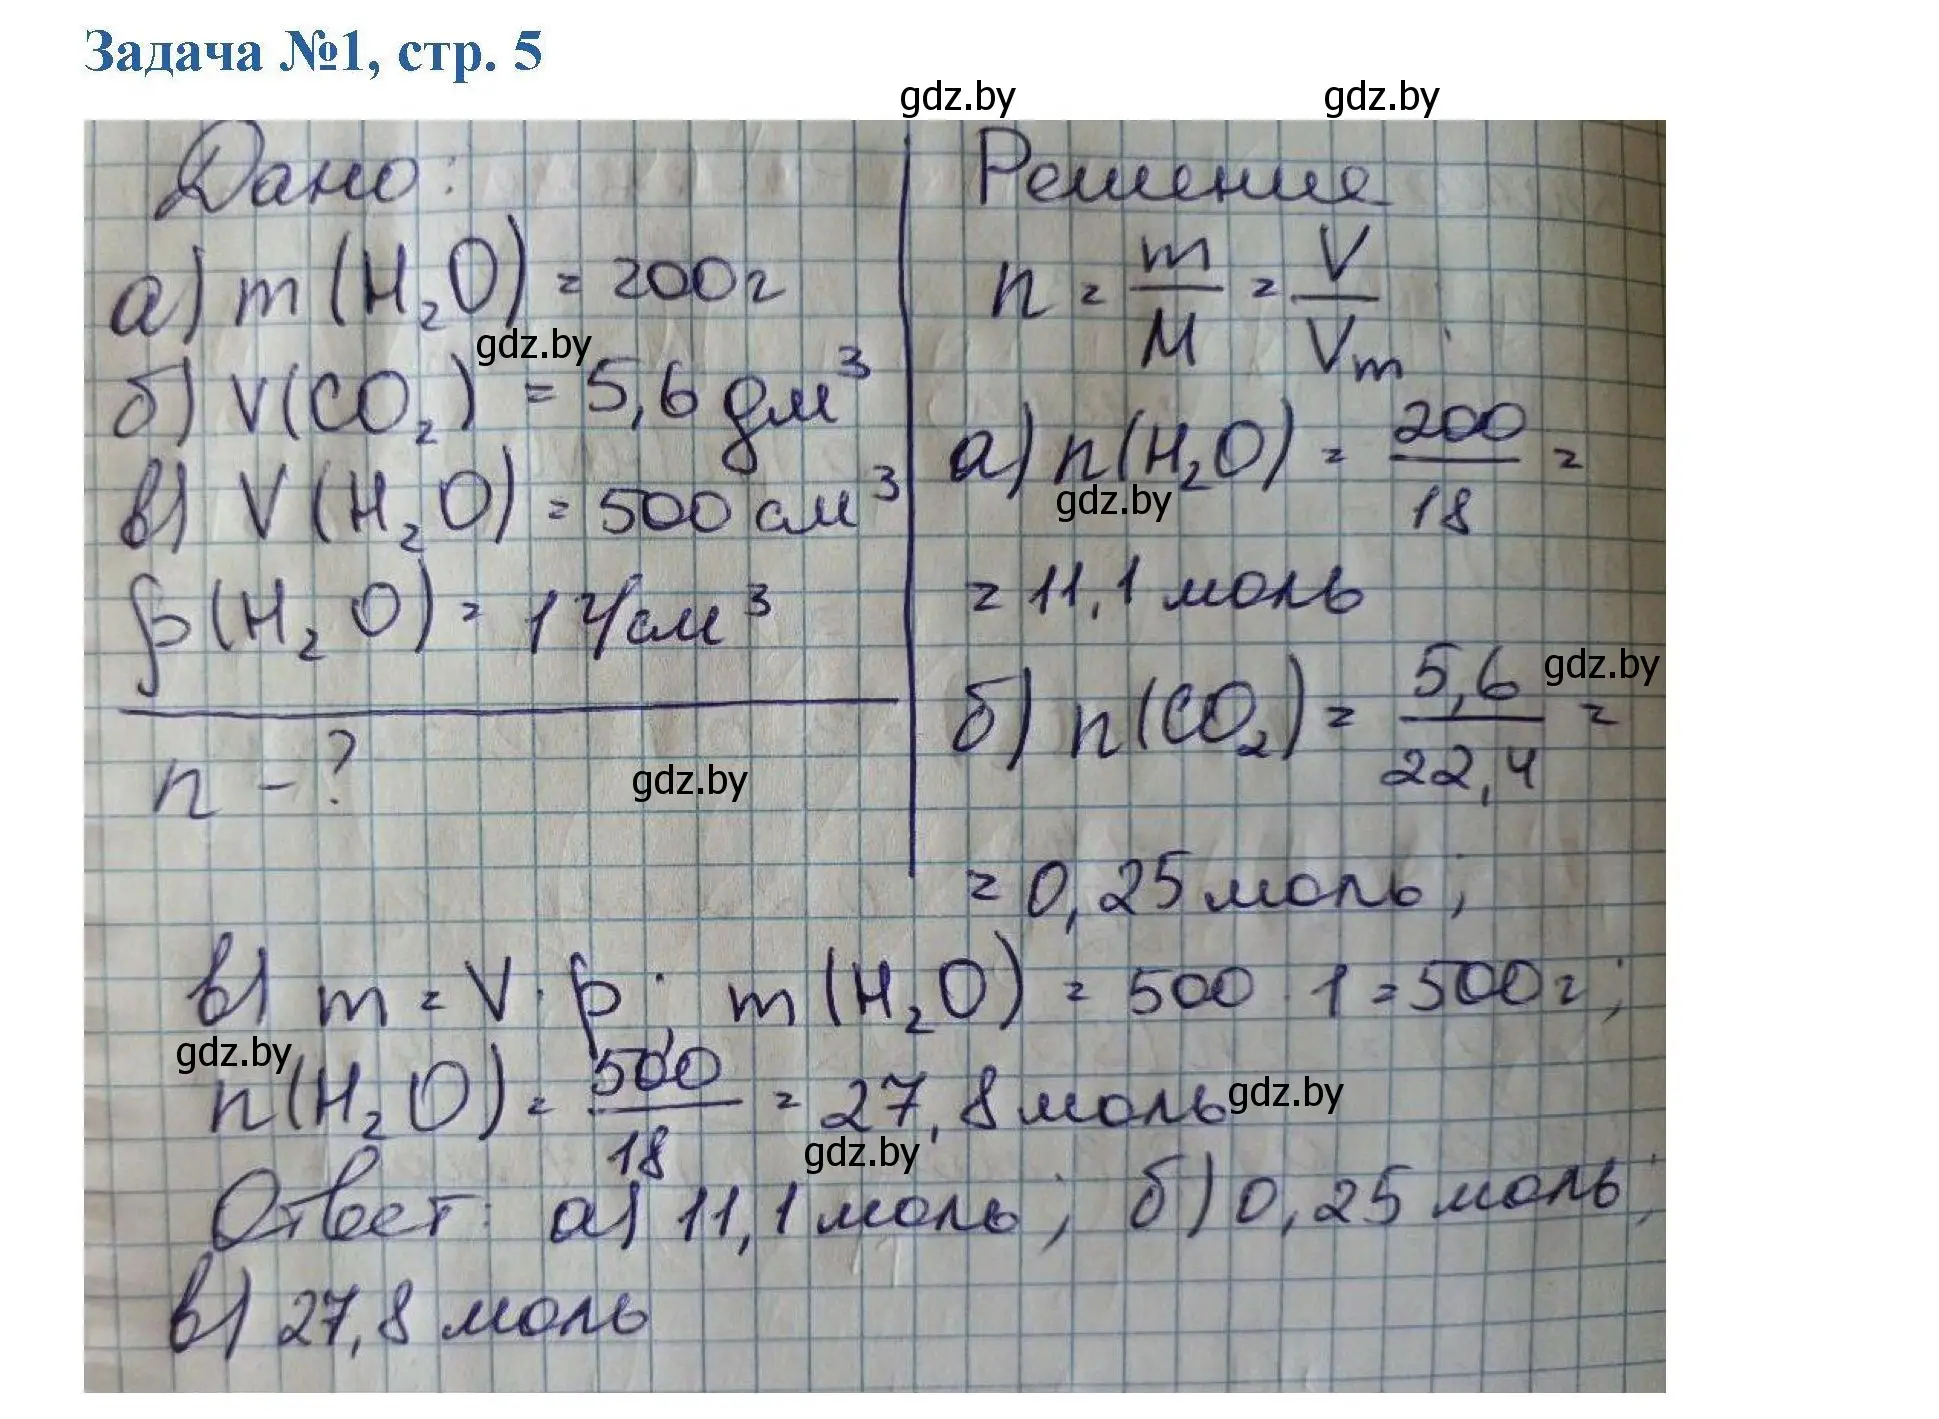 Задача №1, стр. 5
gdz.by gdz.by
Дано:
а) m (H₂O) = 200г
gdz.by
б) V(CO₂) = 5,6 дм³
в) V (H₂O) = 500 см³
ρ(H₂O) = 1 г/см³
n - ?
gdz.by
Решение
n = m/M = V/Vm;
а) n(H₂O) = 200/18 =
gdz.by
= 11,1 моль
б) n(CO₂) = 5,6/22,4 =
gdz.by
= 0,25 моль;
в) m = V · ρ; m (H₂O) = 500 · 1 = 500г;
gdz.by
n(H₂O) = 500/18 = 27,8 моль
gdz.by
gdz.by
Ответ: а) 11,1 моль; б) 0,25 моль;
в) 27,8 моль